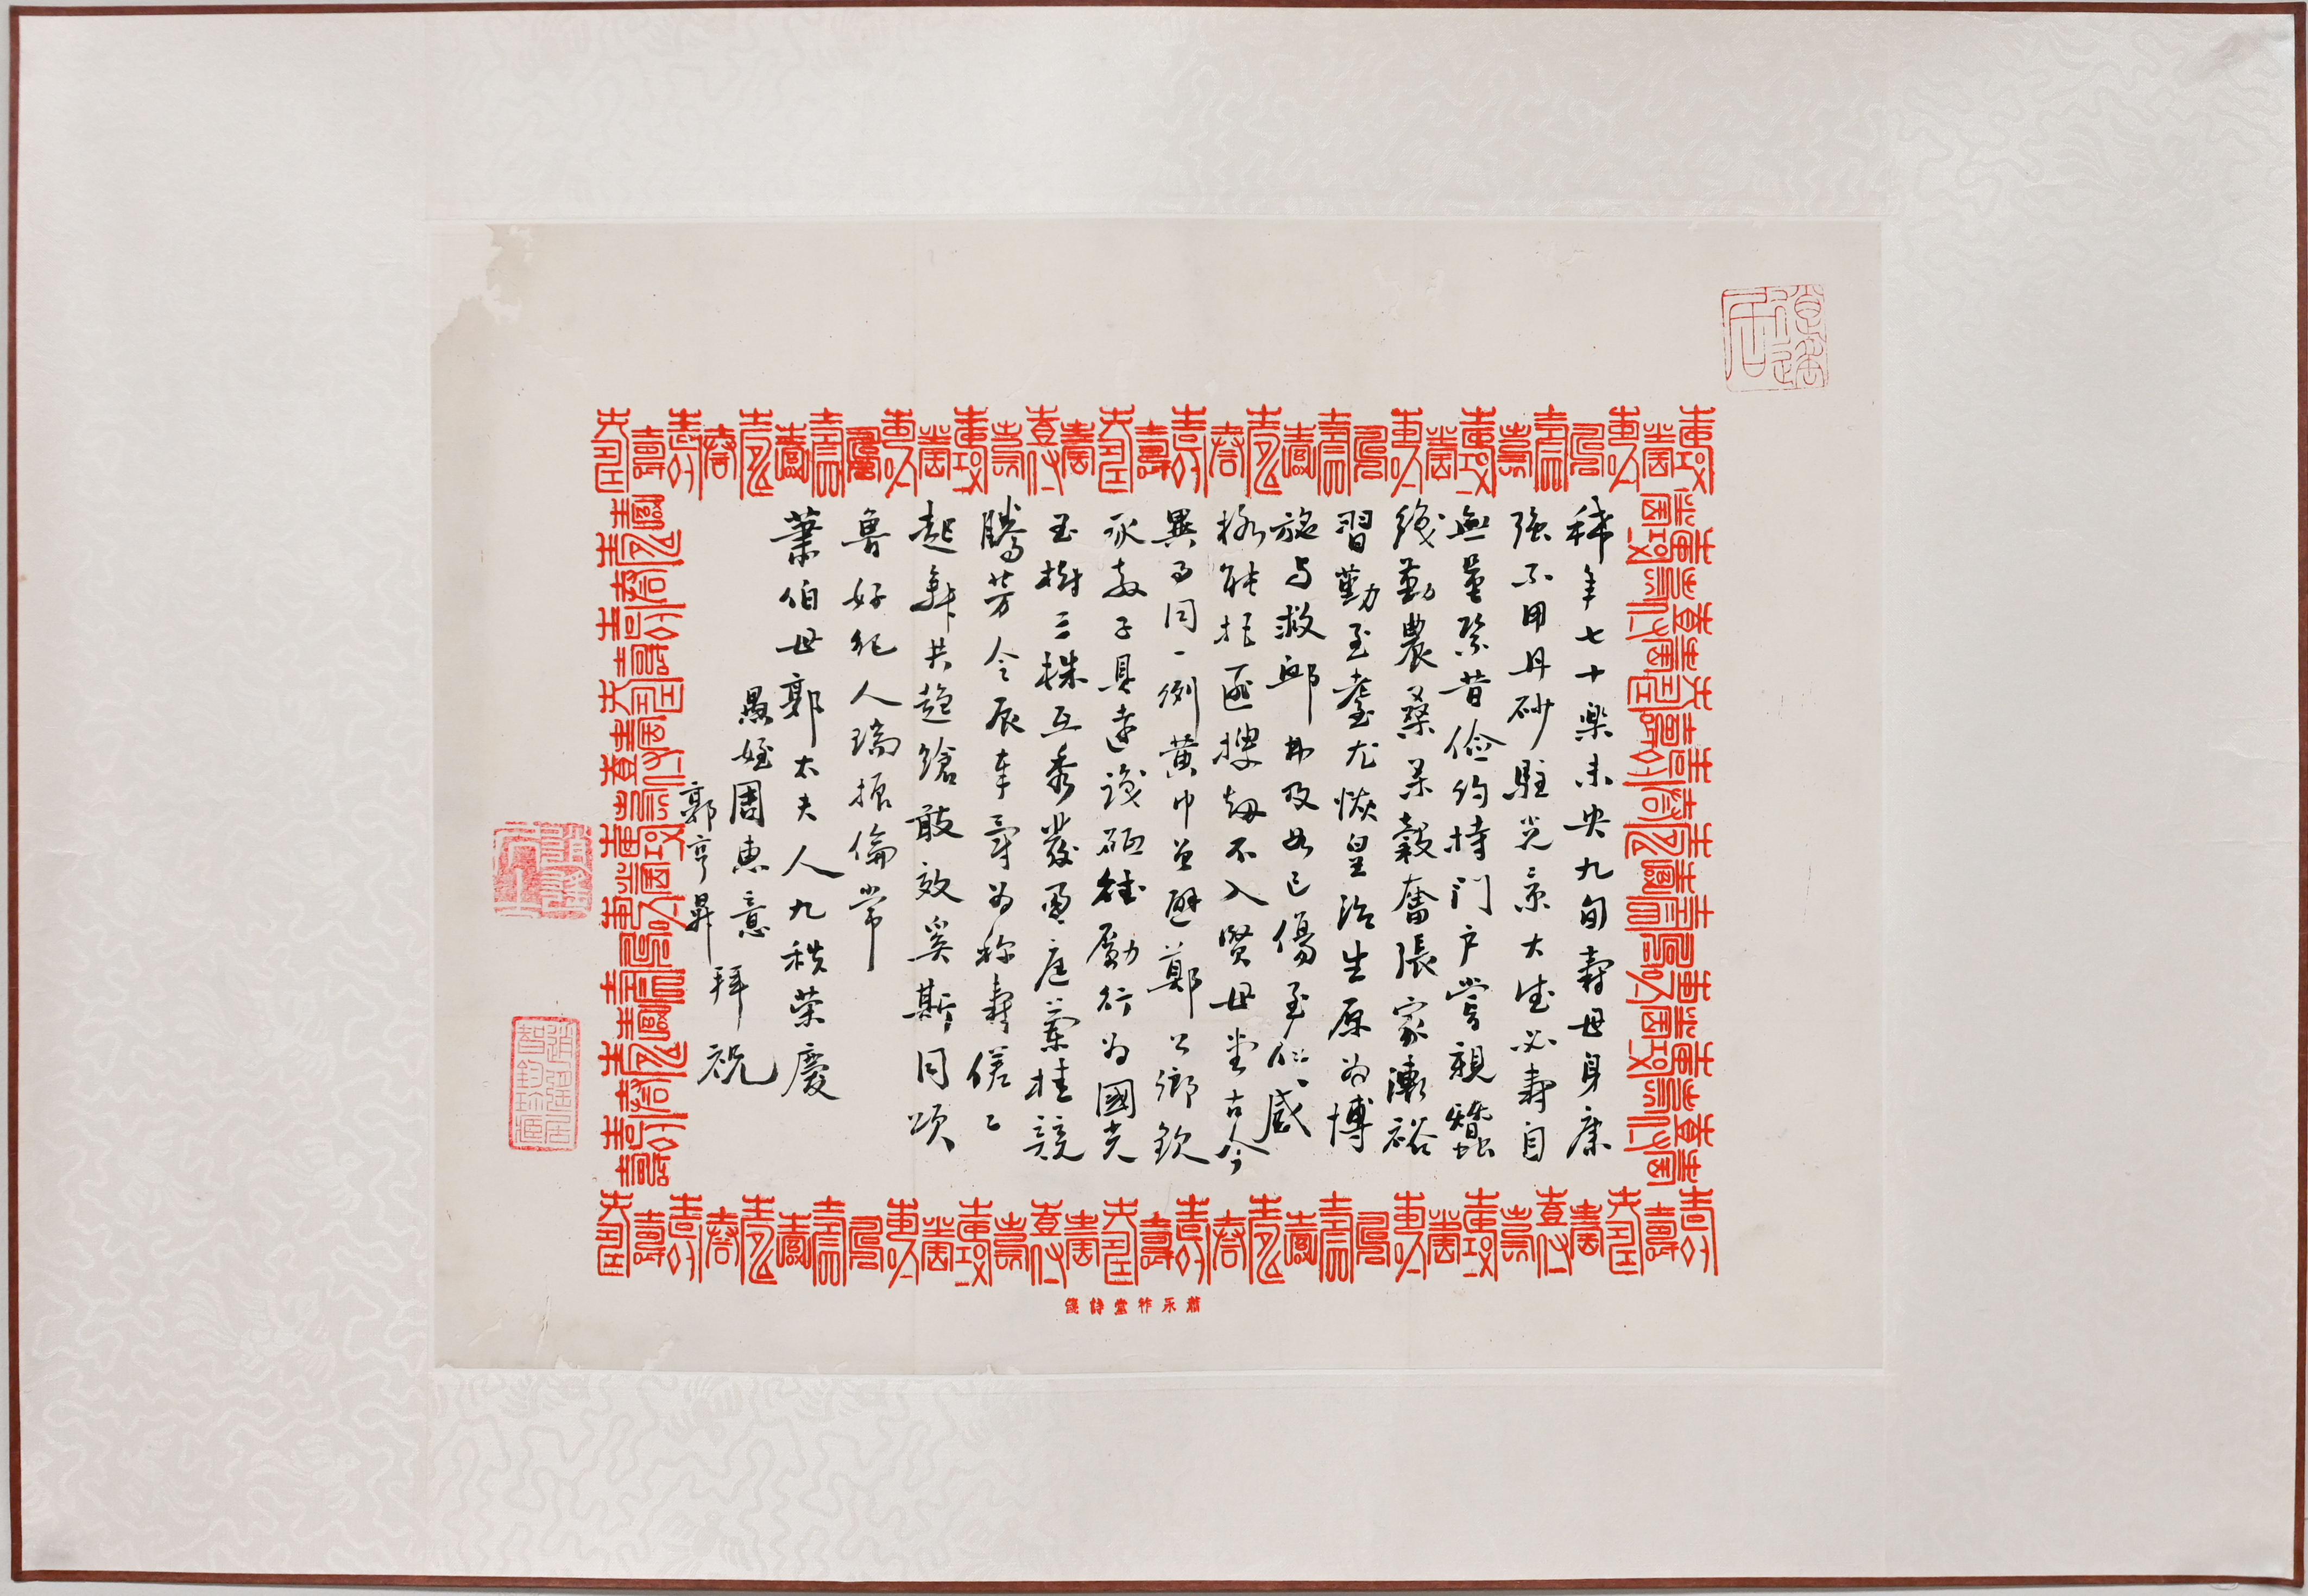 稀年七十樂未央九旬壽母身康
強不用丹砂駐光景大德必壽自
無量緊昔儉約持門戶嘗親蠶
織勤農桑米穀奮張家漸裕
習勤至耋尤恢皇治生原為博
施与救卹弗及如己傷至仁感
極能拒匪搜劫不入賢母堂古今
異事同一例黃巾曾避鄭公鄉欽
承教子具遠識砥德勵行為國光
玉樹三株互秀發勇庭蘭桂競
騰芳今辰率爾為稱壽傞傞
起舞共趨蹌敢效奚斯同頌
魯好紀人瑞振倫常
蕭伯世郭太夫人九秩榮慶
愚姪周惠意
郭亨昇
拜祝
蕭永祚堂詩箋